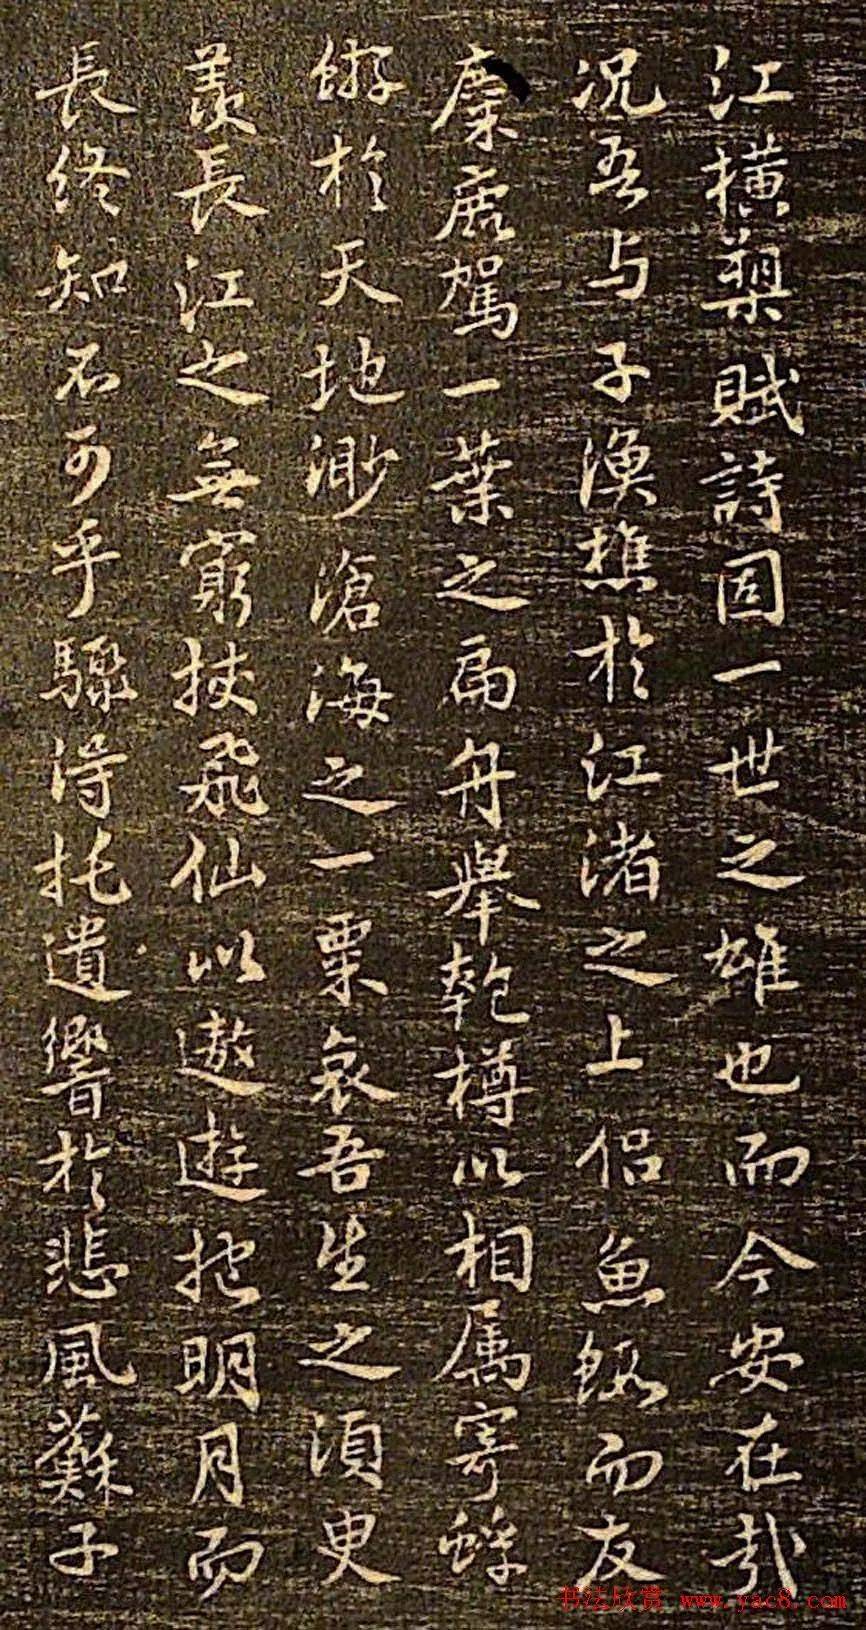 江橫槊賦詩固一世之雄也而今安在哉
況吾与子漁樵於江渚之上侣魚蝦而友
麋鹿駕一葉之扁舟舉匏樽以相属寄蜉
蝣於天地渺滄海之一粟哀吾生之湏臾
羨長江之無窮挟飛仙以遨遊抱明月而
長終知不可乎驟得托遺響於悲風蘇子
书法欣赏 www.yac8.com